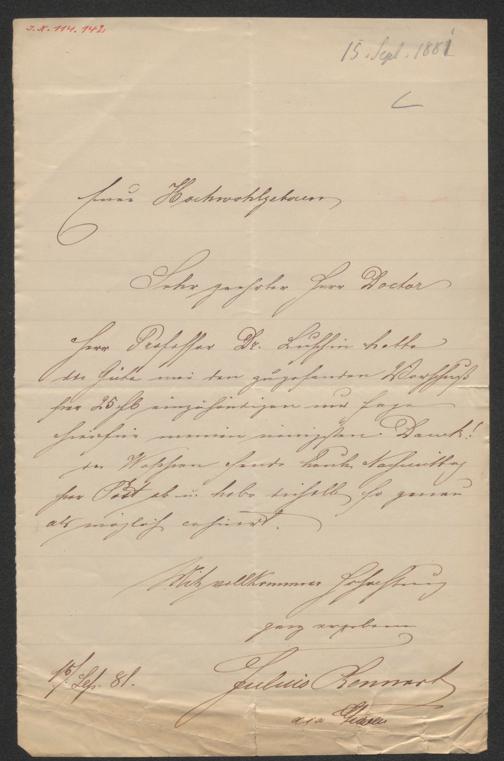 J.N. 114.142
15. Sept. 1881
Euer Hochwohlgeboren
Sehr geehrter Herr Doctor
Herr Professor Dr. Luschin hatte
die Güte mir den zugesandten Vorschuß
per 25 fl einzuhändigen und sage
hierfür meinen innigsten Dank!
Nachmittag
per Post ab u. habe dieselbe so genau
als möglich
Mit vollkommener Hochachtung
ganz ergebener
15/Sept. 81.
Julius